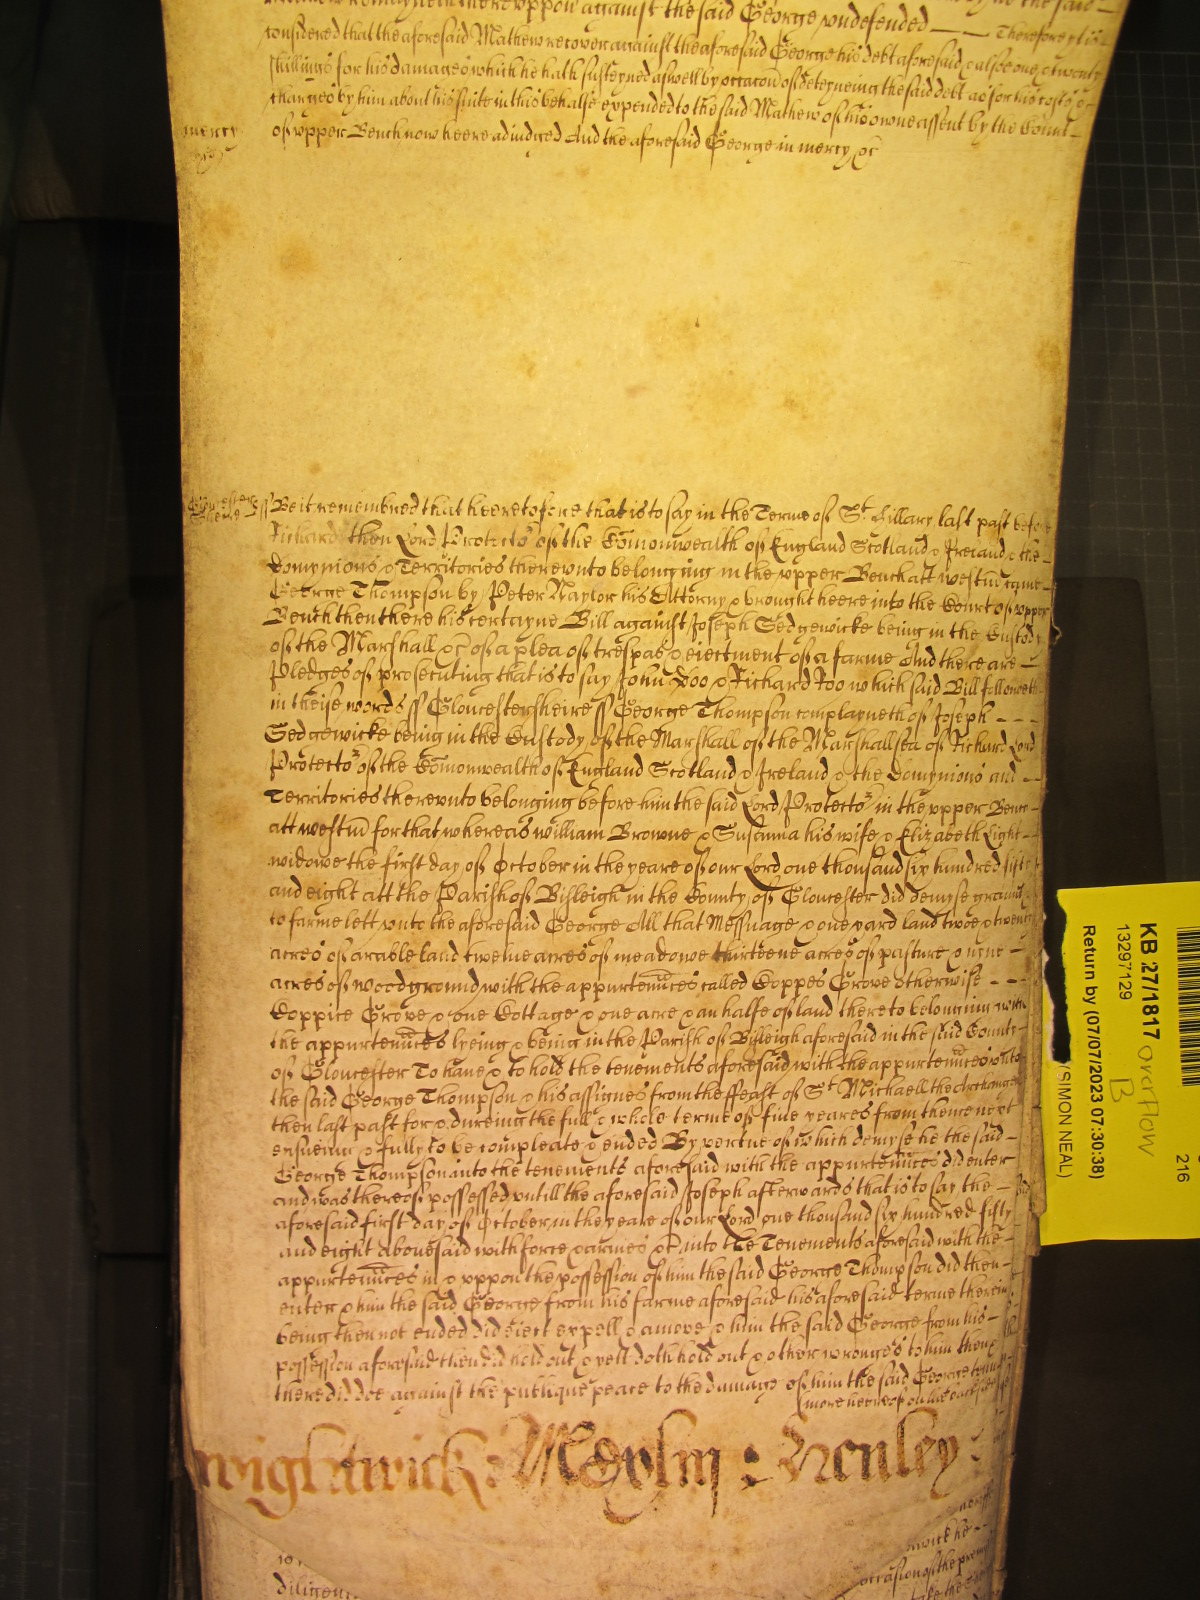 against the said George undefended — — Therefore it is
considered that the aforesaid Mathew recover against the aforesaid George his debt aforesaid & alsoe one & twenty
shillings for his damages which he hath susteyned aswell by occacon of deteyneing the said debt as for his costs &
charges by him about his suite in this behalfe expended to the said Mathew of his owne assent by the Court
mercy
of upper Bench now heere adiudged And the aforesaid George in mercy &c
ss Be it remembred that heeretofore that is to say in the Terme of St Hillary last past before
Richard then Lord Protector of the Comonwealth of England Scotland & Ireland & the
Dominions & Territories thereunto belonging in the upper Bench att Westm came
George Thompson by Peter Naylor his Attorny & brought heere into the Court of upper
Bench then there his certayne Bill against Joseph Sedgewicke being in the Custody
of the Marshall &c of a plea of trespas & eiectment of a farme And there are —
Pledges of prosecuting that is to say John Doo & Richard Roo which said Bill followeth
in theise words ss Gloucestersheire ss George Thompson complayneth of Joseph - - -
Sedgewicke being in the Custody of the Marshall of the Marshallsea of Richard Lord
Protector of the Comonwealth of England Scotland & Ireland & the Dominions and --
Territories thereunto belonging before him the said Lord Protector in the upper Bench
att Westm for that whereas William Browne & Susanna his wife & Elizabeth Light
widowe the first day of October in the yeare of our Lord one thousand six hundred fifty
and eight att the Parish of Bisleigh in the County of Gloucester did demyse graunt
to farme lett unto the aforesaid George All that Messuage & one yard land twoe & twenty
acres of arable land twelve acres of meadowe thirteene acres of pasture & nyne —
acres of woodground with the appurtennces called Coppes Grove otherwise - - - -
Coppice Grove & one Cottage & one acre & an halfe of land thereto belonging with
the appurtennces lyeing & being in the Parish of Bisleigh aforesaid in the said County
of Gloucester To have & to hold the tenements aforesaid with the appurtennces unto
the said George Thompson & his assignes from the ffeast of St Michaell the Archangel
then last past for & dureing the full & whole terme of five yeares from thence next
ensueing & fully to be compleate & ended By vertue of which demyse he the said —
George Thompson into the tenements aforesaid with the appurtennces did enter
and was thereof possessed untill the aforesaid Joseph afterwards that is to say the —
aforesaid first day of October in the yeare of our Lord one thousand six hundred fifty
and eight abovesaid with force & armes &c into the Tenements aforesaid with the —
appurtennces in & uppon the possession of him the said George Thompson did then —
enter & him the said George from his farme aforesaid his aforesaid terme therein
being then not ended did eiect expell & amove & him the said George from his —
possession aforesaid then did hold out & yett doth hold out & other wronges to him then
there did doe against the publique peace to the damage of him the said George
more heereof on the backside
Wightwick : Malyn : Henley
diligenc
occasion of the
KB 27/1817
overflow
B
13297129
Return by (07/07/2023 07:30:38)
(SIMON NEAL)
216